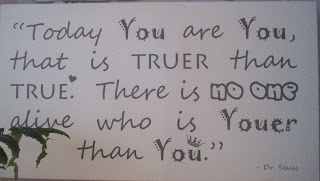 “Today You are You,
that is TRUER than
TRUE. There is no one
alive who is Youer
than You.”
- Dr. Seuss